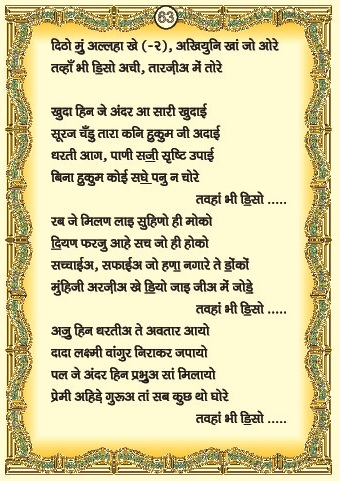 63
दिठो मुं अल्लहा खे (-२), अखियुनि खां जो ओरे
तव्हाँ भी डि॒सो अची, तारजी॒अ में तोरे
खुदा हिन जे अंदर आ सारी खुदाई
सूरज चँडु तारा कनि हुकुम जी अदाई
धरती आग, पाणी सजी॒ सृष्टि उपाई
बिना हुकुम कोई सघे॒ पनु न चोरे
तवहां भी डि॒सो .....
रब जे मिलण लाइ सुहिणो ही मोको
दि॒यण फरजु आहे सच जो ही होको
सच्चाईअ, सफाईअ जो हणा॒ नगारे ते डों॒कों
मुंहिजी अरजी॒अ खे डि॒यो जाइ जीअ में जोडे॒
तवहां भी डि॒सो .....
अजु॒ हिन धरतीअ ते अवतार आयो
दादा लक्ष्मी वांगुर निराकर जपायो
पल जे अंदर हिन प्रभु॒अ सां मिलायो
प्रेमी अहिडे॒ गुरूअ तां सब कुछ थो घोरे
तवहां भी डि॒सो .....